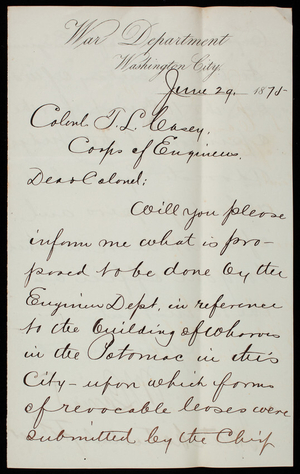 War Department
Washington City.
June 29. 1875
Colonl T. L. Casey.
Corps of Engineers.
Dear Colonel;
Will you please
inform me what is pro-
posed to be done by the
Engineer Dept. in reference
to the building of wharves
in the Potomac in this
City - upon which forms
of revocable leases were
submitted by the Chief